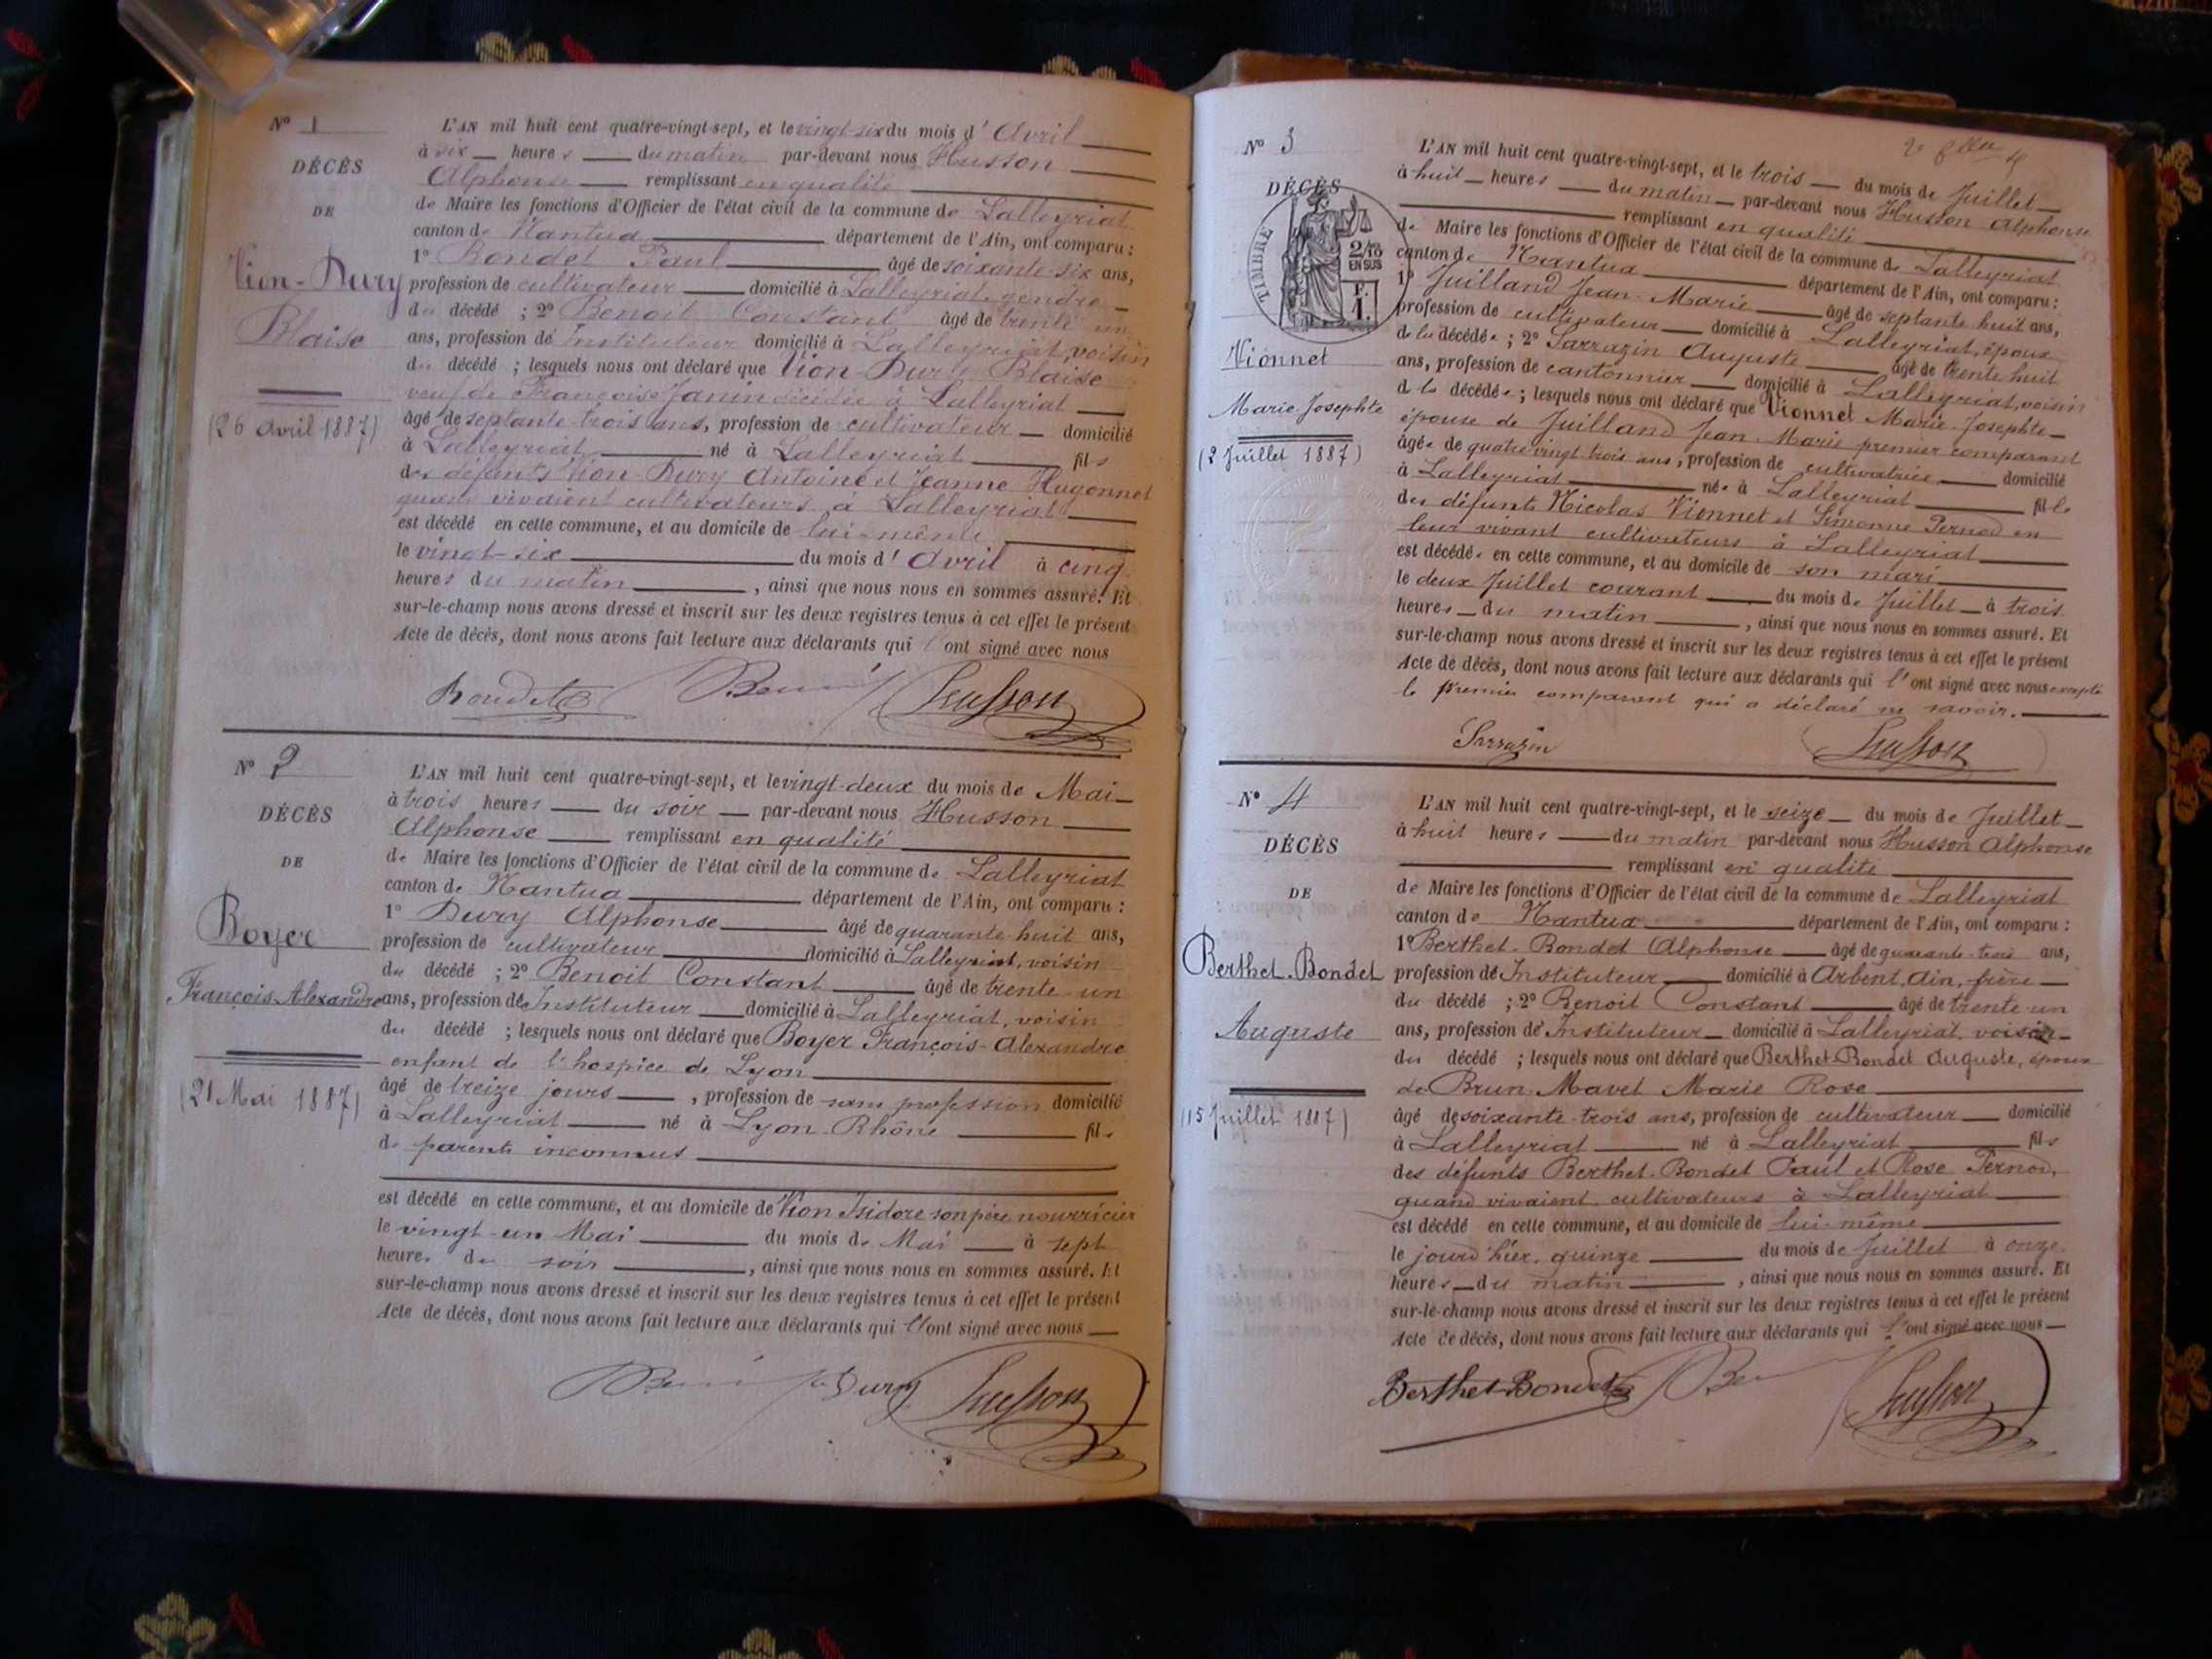 N° 1
DÉCÈS
DE
Vion-Dury
Blaise
(26 Avril 1887)
L'AN mil huit cent quatre-vingt-sept, et le vingt-six du mois d' Avril
à six heures du matin par-devant nous Husson
Alphonse remplissant en qualité
de Maire les fonctions d'Officier de l'état civil de la commune de Lalleyriat
canton de Nantua département de l'Ain, ont comparu :
1° Bondet Paul âgé de soixante-six ans,
profession de cultivateur domicilié à Lalleyriat, gendre
du décédé ; 2° Benoit Constant âgé de trente un
ans, profession de Instituteur domicilié à Lalleyriat, voisin
du décédé ; lesquels nous ont déclaré que Vion-Dury Blaise
veuf de Françoise Janin décédée à Lalleyriat
âgé de septante-trois ans, profession de cultivateur domicilié
à Lalleyriat né à Lalleyriat fils
des défunts Vion-Dury Antoine et Jeanne Hugonnet
quand vivaient cultivateurs à Lalleyriat
est décédé en cette commune, et au domicile de lui-même
le vingt-six du mois d' Avril à cinq
heures du matin, ainsi que nous nous en sommes assuré. Et
sur-le-champ nous avons dressé et inscrit sur les deux registres tenus à cet effet le présent
Acte de décès, dont nous avons fait lecture aux déclarants qui l'ont signé avec nous
Bondet Husson
N° 2
DÉCÈS
DE
Boyer
François-Alexandre
(21 Mai 1887)
L'AN mil huit cent quatre-vingt-sept, et le vingt-deux du mois de Mai
à trois heures du soir par-devant nous Husson
Alphonse remplissant en qualité
de Maire les fonctions d'Officier de l'état civil de la commune de Lalleyriat
canton de Nantua département de l'Ain, ont comparu :
1° Dury Alphonse âgé de quarante-huit ans,
profession de cultivateur domicilié à Lalleyriat, voisin
du décédé ; 2° Benoit Constant âgé de trente-un
ans, profession de Instituteur domicilié à Lalleyriat, voisin
du décédé ; lesquels nous ont déclaré que Boyer François-Alexandre
enfant de l'hospice de Lyon
âgé de treize jours, profession de sans profession domicilié
à Lalleyriat né à Lyon-Rhône fils
de parents inconnus
est décédé en cette commune, et au domicile de Vion Isidore son père nourricier
le vingt-un Mai du mois de Mai à sept
heures du soir, ainsi que nous nous en sommes assuré. Et
sur-le-champ nous avons dressé et inscrit sur les deux registres tenus à cet effet le présent
Acte de décès, dont nous avons fait lecture aux déclarants qui l'ont signé avec nous
Dury Husson
N° 3
DÉCÈS
TIMBRE
2/10
EN SUS
F.
1.
Vionnet
Marie-Josephte
(2 Juillet 1887)
L'AN mil huit cent quatre-vingt-sept, et le trois du mois de Juillet
à huit heures du matin par-devant nous Husson Alphonse
remplissant en qualité
de Maire les fonctions d'Officier de l'état civil de la commune de Lalleyriat
canton de Nantua département de l'Ain, ont comparu :
1° Juilland Jean-Marie âgé de septante huit ans,
profession de cultivateur domicilié à Lalleyriat, époux
de la décédée ; 2° Sarrazin Auguste âgé de trente huit
ans, profession de cantonnier domicilié à Lalleyriat, voisin
de la décédée ; lesquels nous ont déclaré que Vionnet Marie-Josephte
épouse de Juilland Jean-Marie premier comparant
âgée de quatre-vingt-trois ans, profession de cultivatrice domicilié
à Lalleyriat née à Lalleyriat fille
des défunts Nicolas Vionnet et Simonne Pernod en
leur vivant cultivateurs à Lalleyriat
est décédée en cette commune, et au domicile de son mari
le deux Juillet courant du mois de Juillet à trois
heures du matin, ainsi que nous nous en sommes assuré. Et
sur-le-champ nous avons dressé et inscrit sur les deux registres tenus à cet effet le présent
Acte de décès, dont nous avons fait lecture aux déclarants qui l'ont signé avec nous excepté
le premier comparant qui a déclaré ne savoir.
Sarrazin Husson
N° 4
DÉCÈS
DE
Berthet-Bondet
Auguste
(15 Juillet 1887)
L'AN mil huit cent quatre-vingt-sept, et le seize du mois de Juillet
à huit heures du matin par-devant nous Husson Alphonse
remplissant en qualité
de Maire les fonctions d'Officier de l'état civil de la commune de Lalleyriat
canton de Nantua département de l'Ain, ont comparu :
1° Berthet-Bondet Alphonse âgé de quarante-trois ans,
profession de Instituteur domicilié à Arbent, Ain, frère
du décédé ; 2° Benoit Constant âgé de trente-un
ans, profession de Instituteur domicilié à Lalleyriat voisin
du décédé ; lesquels nous ont déclaré que Berthet-Bondet Auguste, époux
de Brun-Mavet Marie Rose
âgé de soixante-trois ans, profession de cultivateur domicilié
à Lalleyriat né à Lalleyriat fils
des défunts Berthet-Bondet Paul et Rose Pernod,
quand vivaient cultivateurs à Lalleyriat
est décédé en cette commune, et au domicile de lui-même
le jourd'hier, quinze du mois de Juillet à onze
heures du matin, ainsi que nous nous en sommes assuré. Et
sur-le-champ nous avons dressé et inscrit sur les deux registres tenus à cet effet le présent
Acte de décès, dont nous avons fait lecture aux déclarants qui l'ont signé avec nous
Berthet-Bondet Husson